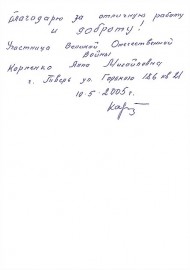 Благодарю за отличную работу
и доброту!
Участница Великой Отечественной
Войны
Карпенко Анна Михайловна
г. Тверь ул. Горького 126 кв 21
10.5.2005г.